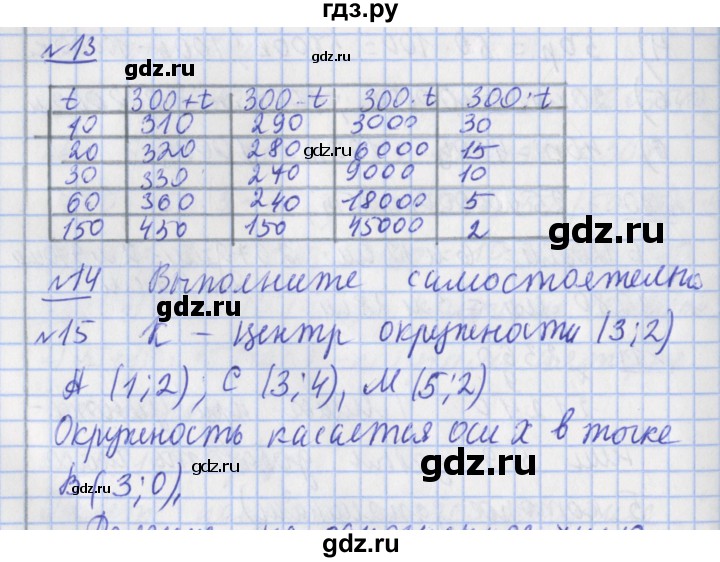 гдз.ру
№13
gdz.ru
gdz.ru
t 300+t 300-t 300·t 300:t
10 310 290 3000 30
20 320 280 6000 15
gdz.ru
30 330 240 9000 10
60 360 240 18000 5
150 450 150 45000 2
gdz.ru
№14 Выполните самостоятельно
gdz.ru
gdz.ru
№15 К – Центр окружности (3;2)
А (1;2), С (3;4), М (5;2)
gdz.ru
Окружность касается оси х в точке
gdz.ru
В (3;0),
gdz.ru
gdz.ru